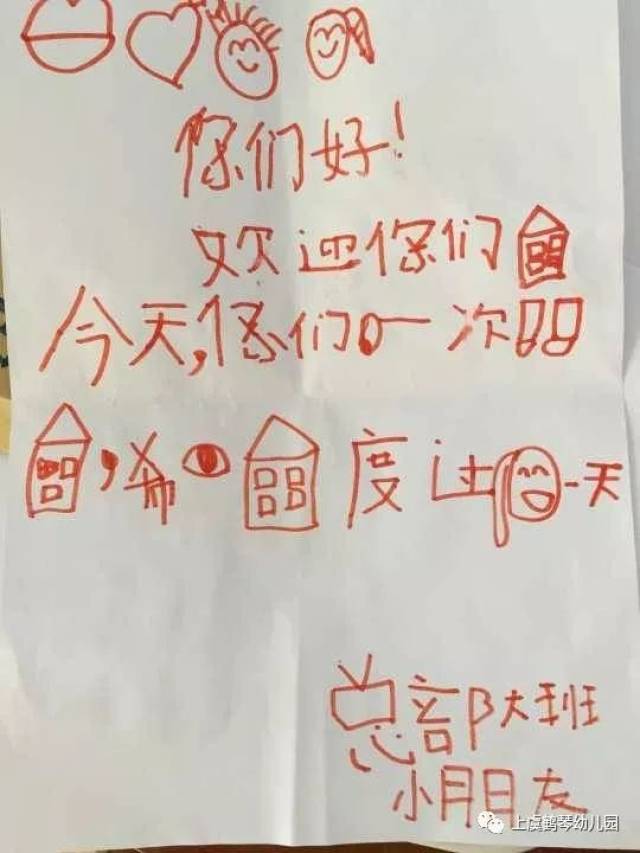 你们好!
欢迎你们
今天,你们一次
,希度过一天
总部大班
小朋友
上虞鹤琴幼儿园